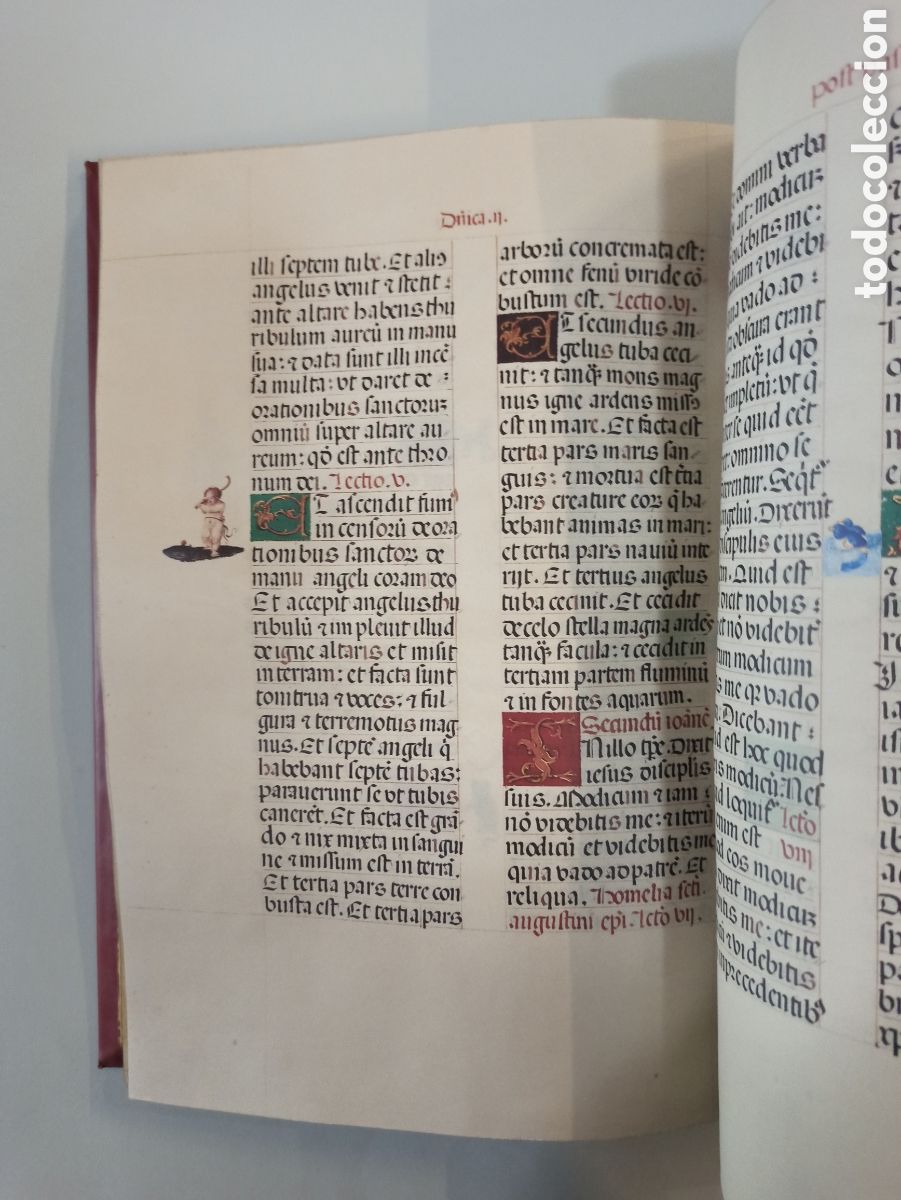 Dñica .ij.
illi septem tube. Et aliꝰ
angelus venit ⁊ stetit
ante altare habens thu
ribulum aureū in manu
sua: ⁊ data sunt illi incē
sa multa: vt daret de
orationibus sanctorum
omniū super altare au
reum: qd̄ est ante thro
num dei. Lectio. v.
ET ascendit fumꝰ
incensorū de ora
tionibus sanctorꝫ de
manu angeli coram deo
Et accepit angelus thu
ribulū ⁊ impleuit illud
de igne altaris et misit
in terram: et facta sunt
tonitrua ⁊ voces: ⁊ ful
gura ⁊ terremotus mag
nus. Et septē angeli q̄
habebant septē tubas:
parauerunt se vt tubis
canerēt. Et facta est grā
do ⁊ nix mixta in sangui
ne ⁊ missum est in terrā.
Et tertia pars terre com
busta est. Et tertia pars
arborū concremata est:
et omne fenū viride cō
bustum est. Lectio. vj.
ET secundus an
gelus tuba ceci
nit: ⁊ tanq̄ mons mag
nus igne ardens missꝰ
est in mare. Et facta est
tertia pars maris san
guis: ⁊ mortua est t̄tia
pars creature eorꝫ q̄ ha
bebant animas in mari:
et tertia pars nauiū inte
rijt. Et tertius angelus
tuba cecinit. Et cecidit
de celo stella magna ardēs
tanq̄ facula: ⁊ cecidit in
tertiam partem fluminū
⁊ in fontes aquarum.
Secundū ioānē.
IN illo tp̄e. Dixit
iesus disciplis
suis. Modicum ⁊ iam
nō videbitis me: ⁊ iterū
modicū et videbitis me
quia vado ad patrē. Et
reliqua. Homelia scī
augustini ep̄i. lcto vij.
post
comini verba
ait: modicum
videbitis me:
icum ⁊ videbi
ia vado ad
obscura erant
anteq̄ id qd̄
impletū: vt q̄
se quid eēt
omnino se
rentur. Seqt̄
angeliū. Dixerūt
discipulis eius
Quid est
dicit nobis:
et nō videbitꝭ
rum modicum
is me qꝛ vado
Dicebant:
id est hoc quod
modicū: Nes
loquitꝰ lcto
cum est viij
eos moue
dixit modicum
tis me: et ite
⁊ videbitis
in precedentibꝰ
todocoleccion